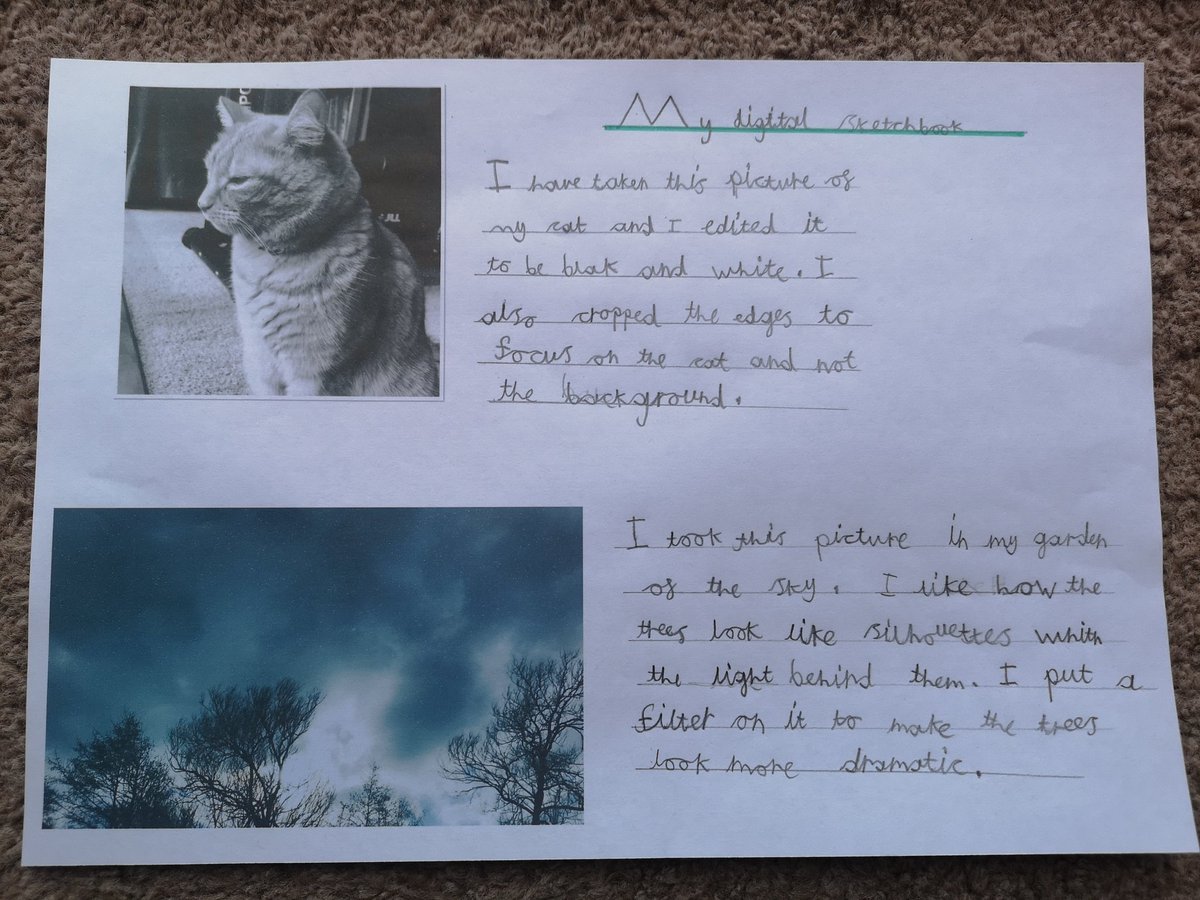 My digital sketchbook
I have taken this picture of
my cat and I edited it
to be blak and white. I
also cropped the edges to
focus on the cat and not
the background.
I took this picture in my garden
of the sky. I like how the
trees look like silhouettes whith
the light behind them. I put a
filter on it to make the trees
look more dramatic.